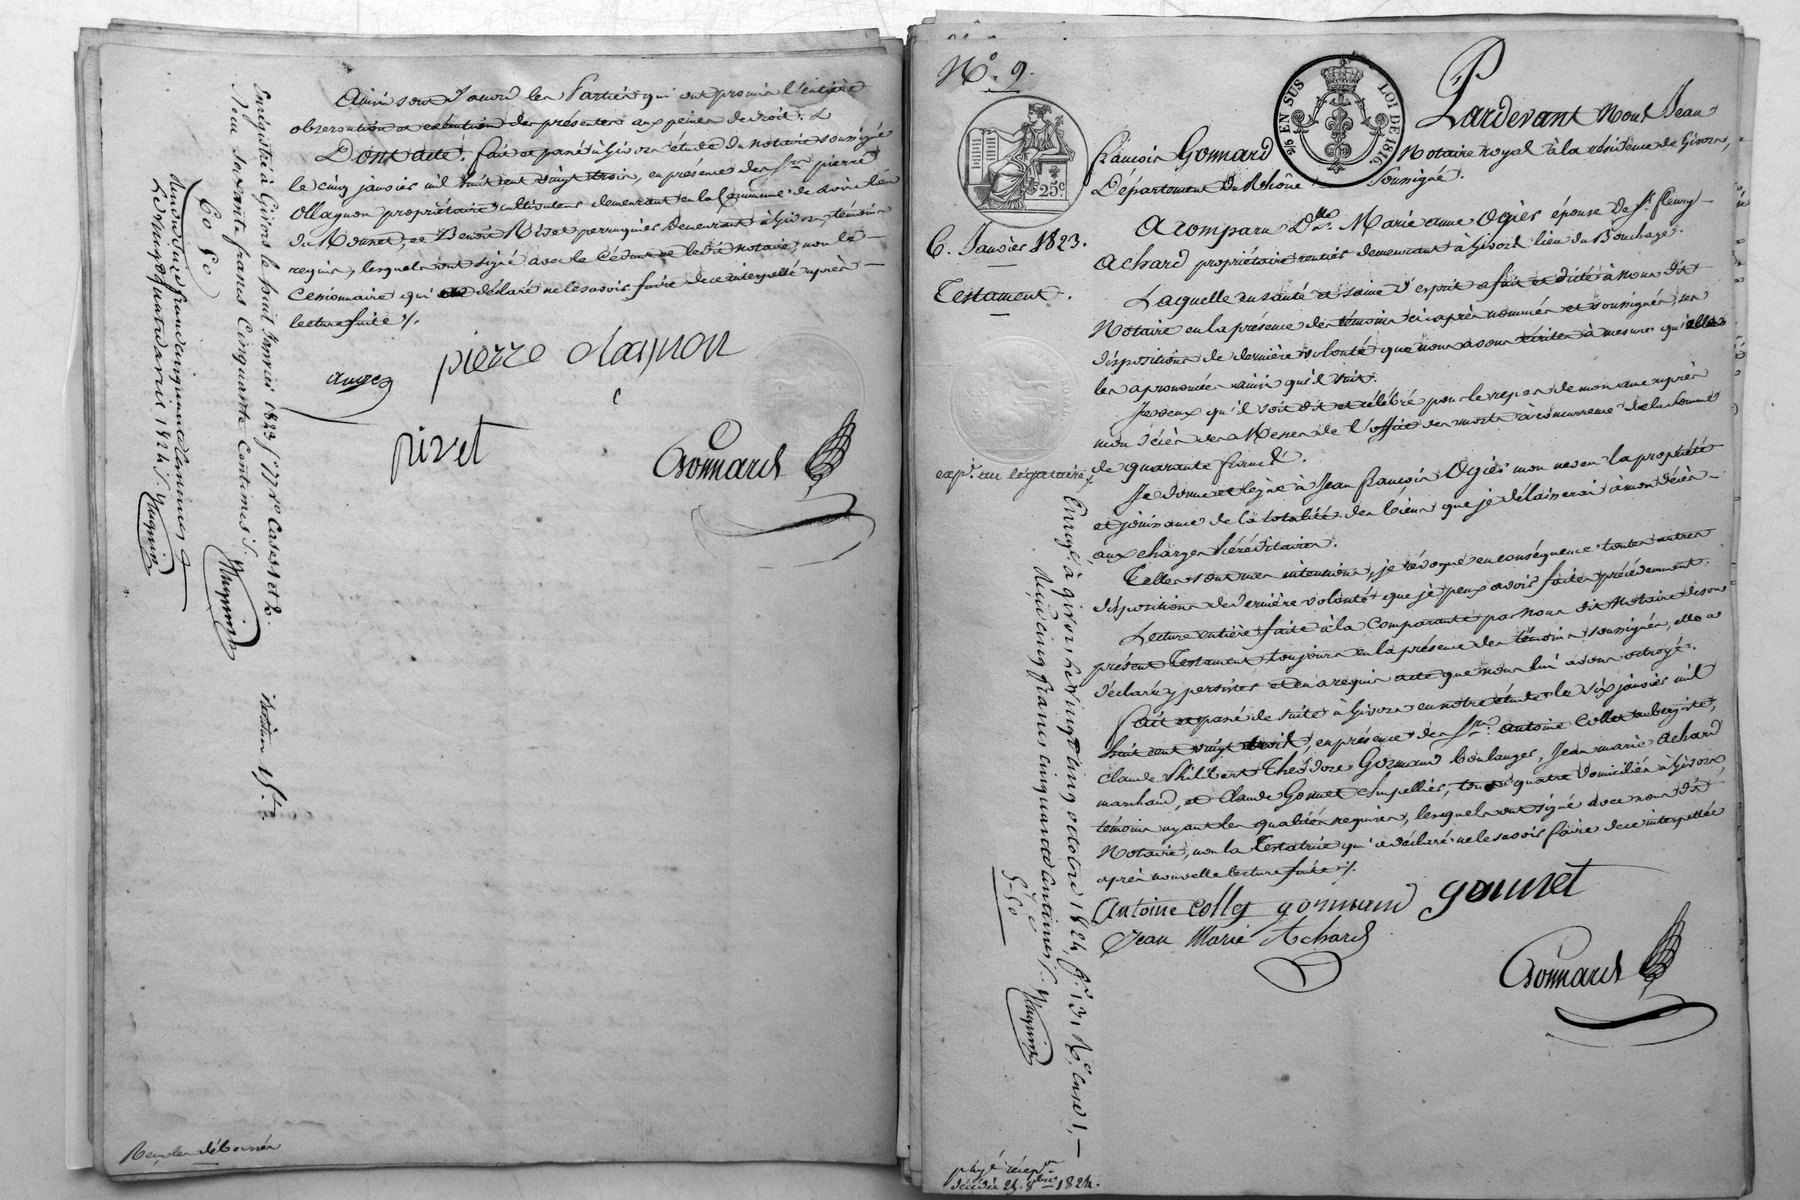 Ainsi sont d'accord les Parties qui ont promis l'entière
observation et exécution des présentes aux peines de droit.
Dont acte. fait et passé à Givors étude du notaire soussigné
le cinq janvier mil huit cent vingt trois, en présence des Srs. pierre
Ollagnon propriétaire cultivateur demeurant en la Commune de
du Mornet, et Benoît Rivet perruquier demeurant à Givors, témoins
requis, lesquels ont signé avec le Cédant et le dit notaire, non la
Cessionnaire qui a déclaré ne le savoir faire de ce interpellé après
lecture faite ./.
pierre olagnon
rivet
Gonnard
Enregistré à Givors le huit Janvier 1823 f° 77 Vo Cases 1 et 2.
Reçu soixante francs Cinquante Centimes
60 50
Le vingt quatre avril 1824
N°. 9.
25 c.
2/5 EN SUS LOI DE 1816
Pardevant Nous Jean
françois Gonnard Notaire royal à la résidence de Givors,
Département du Rhône Soussigné.
6. Janvier 1823.
Testament.
A comparu Dme. Marie anne Ogier épouse de Sr. fleury
Achard propriétaire rentier demeurant à Givors lieu du Bouchage.
Laquelle en santé et saine d'esprit a fait et dicté à nous dit
Notaire en la présence des témoins ci après nommés et soussignés, ses
dispositions de dernière volonté que nous avons écrites à mesure qu'elle
les a prononcées ainsi qu'il suit.
Je veux qu'il soit dit et célébré pour le repos de mon ame après
mon décès des Messes de l'office des morts à concurrence de la somme
de quarante francs.
exp. au légataire
Je donne et lègue à Jean françois Ogier mon neveu la propriété
et jouissance de la totalité des biens que je délaisserai à mon décès
aux charges héréditaires.
Telles sont mes intentions, je révoque en conséquence toutes autres
dispositions de dernière volonté que je peux avoir faites précédemment.
Lecture entière faite à la comparante par nous dit Notaire de son
présent Testament toujours en la présence des témoins soussignés, elle a
déclaré y persister et en a requis acte que nous lui avons octroyé.
fait et passé de suite à Givors en notre étude le six janvier mil
huit cent vingt trois, en présence des Srs. antoine Collet aubergiste,
Claude Philibert Théodore Gormand boulanger, Jean marie Achard
marchand, et Claude Gonnet Chapellier, tous quatre domiciliés à Givors,
témoins ayant les qualités requises, lesquels ont signé avec nous dit
Notaire, non la Testatrice qui a déclaré ne le savoir faire de ce interpellée
après nouvelle lecture faite ./.
Antoine Collet gormand gounet
Jean Marie Achard
Gonnard
Enregé à givors le vingt cinq octobre 1824 f° 131 Ro Case 1,
Reçu cinq francs cinquante centimes
5-50
décédée 1824.